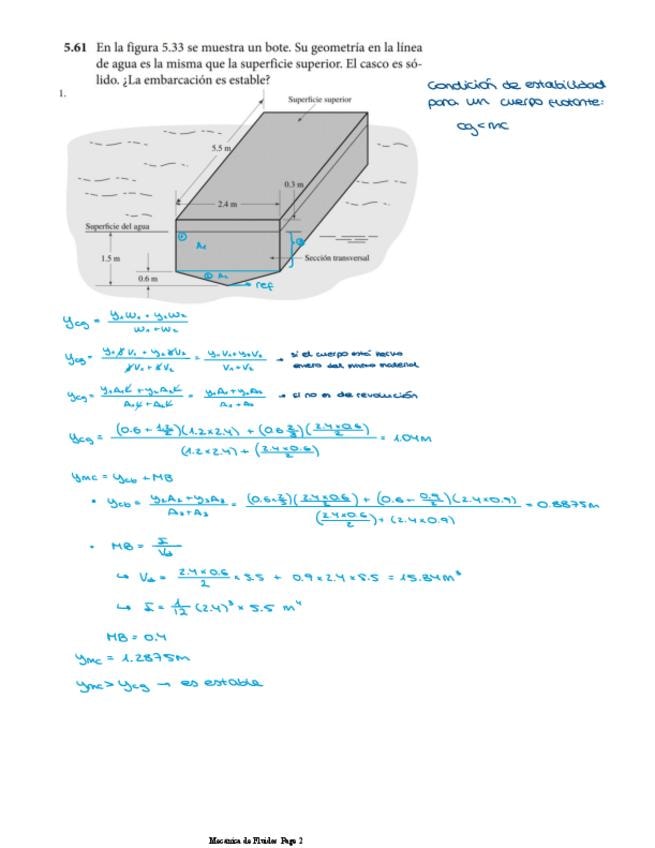 5.61 En la figura 5.33 se muestra un bote. Su geometría en la línea
de agua es la misma que la superficie superior. El casco es só-
lido. ¿La embarcación es estable?
Condición de estabilidad
para un cuerpo flotante:
cg<mc
1.
Superficie superior
5.5 m
0.3 m
2.4 m
Superficie del agua
A₁
1.5 m
Sección transversal
0.6 m
A₂
ref
ycg = (y₁W₁ + y₂W₂) / (W₁ + W₂)
ycg = (y₁γV₁ + y₂γV₂) / (γV₁ + γV₂) = (y₁V₁ + y₂V₂) / (V₁ + V₂) → si el cuerpo está hecho
entero del mismo material
ycg = (y₁A₁L + y₂A₂L) / (A₁L + A₂L) = (y₁A₁ + y₂A₂) / (A₁ + A₂) → si no es de revolución
ycg = ((0.6 + 1.2/2)(1.2×2.4) + (0.6 2/3)(2.4×0.6/2)) / ((1.2×2.4) + (2.4×0.6/2)) = 1.04m
ymc = ycb + MB
• ycb = (y₂A₂ + y₃A₃) / (A₂ + A₃) = ((0.6×2/3)(2.4×0.6/2) + (0.6 + 0.9/2)(2.4×0.9)) / ((2.4×0.6/2) + (2.4×0.9)) = 0.8875m
• MB = I/Vd
↳ Vd = 2.4×0.6/2 × 5.5 + 0.9×2.4×5.5 = 15.84m³
↳ I = 1/12 (2.4)³ × 5.5 m⁴
MB = 0.4
ymc = 1.2875m
ymc > ycg → es estable
Mecanica de Fluidos Page 2